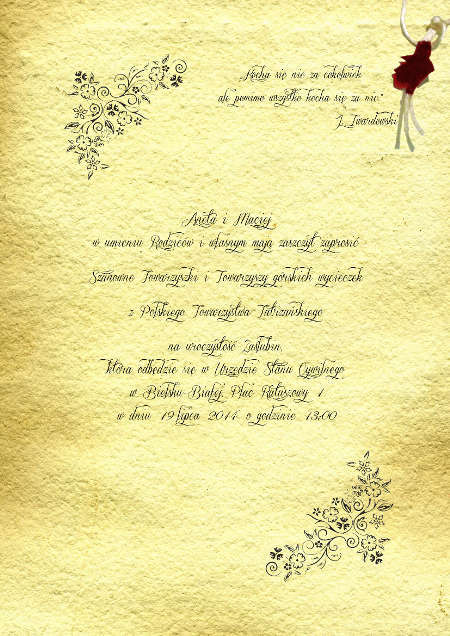 „Kocha się nie za cokolwiek
ale pomimo wszystko kocha się za nic"
J. Twardowski
Aneta i Maciej
w imieniu Rodziców i własnym mają zaszczyt zaprosić
Szanowne Towarzyszki i Towarzyszy górskich wycieczek
z Polskiego Towarzystwa Tatrzańskiego
na uroczystość Zaślubin,
która odbędzie się w Urzędzie Stanu Cywilnego
w Bielsku-Białej, Plac Ratuszowy 1
w dniu 19 lipca 2014 o godzinie 13:00